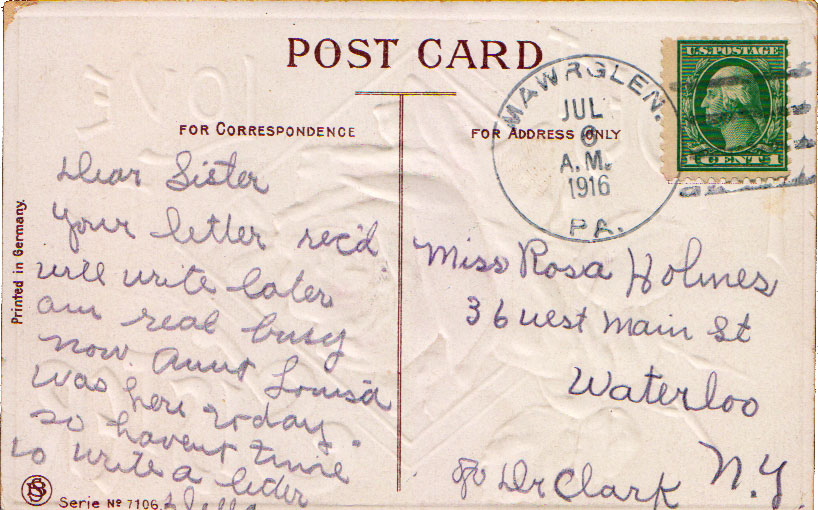 POST CARD
FOR CORRESPONDENCE
FOR ADDRESS ONLY
MAWRGLEN.
JUL
6
A.M.
1916
PA.
U.S. POSTAGE
1 CENT 1
Printed in Germany.
Dear Sister
Your letter rec'd
will write later
am real busy
now. Aunt Louisa
was here today.
so havent time
to write a letter
Miss Rosa Holmes
36 West Main St
Waterloo
N.Y.
Dr Clark
Serie No 7106